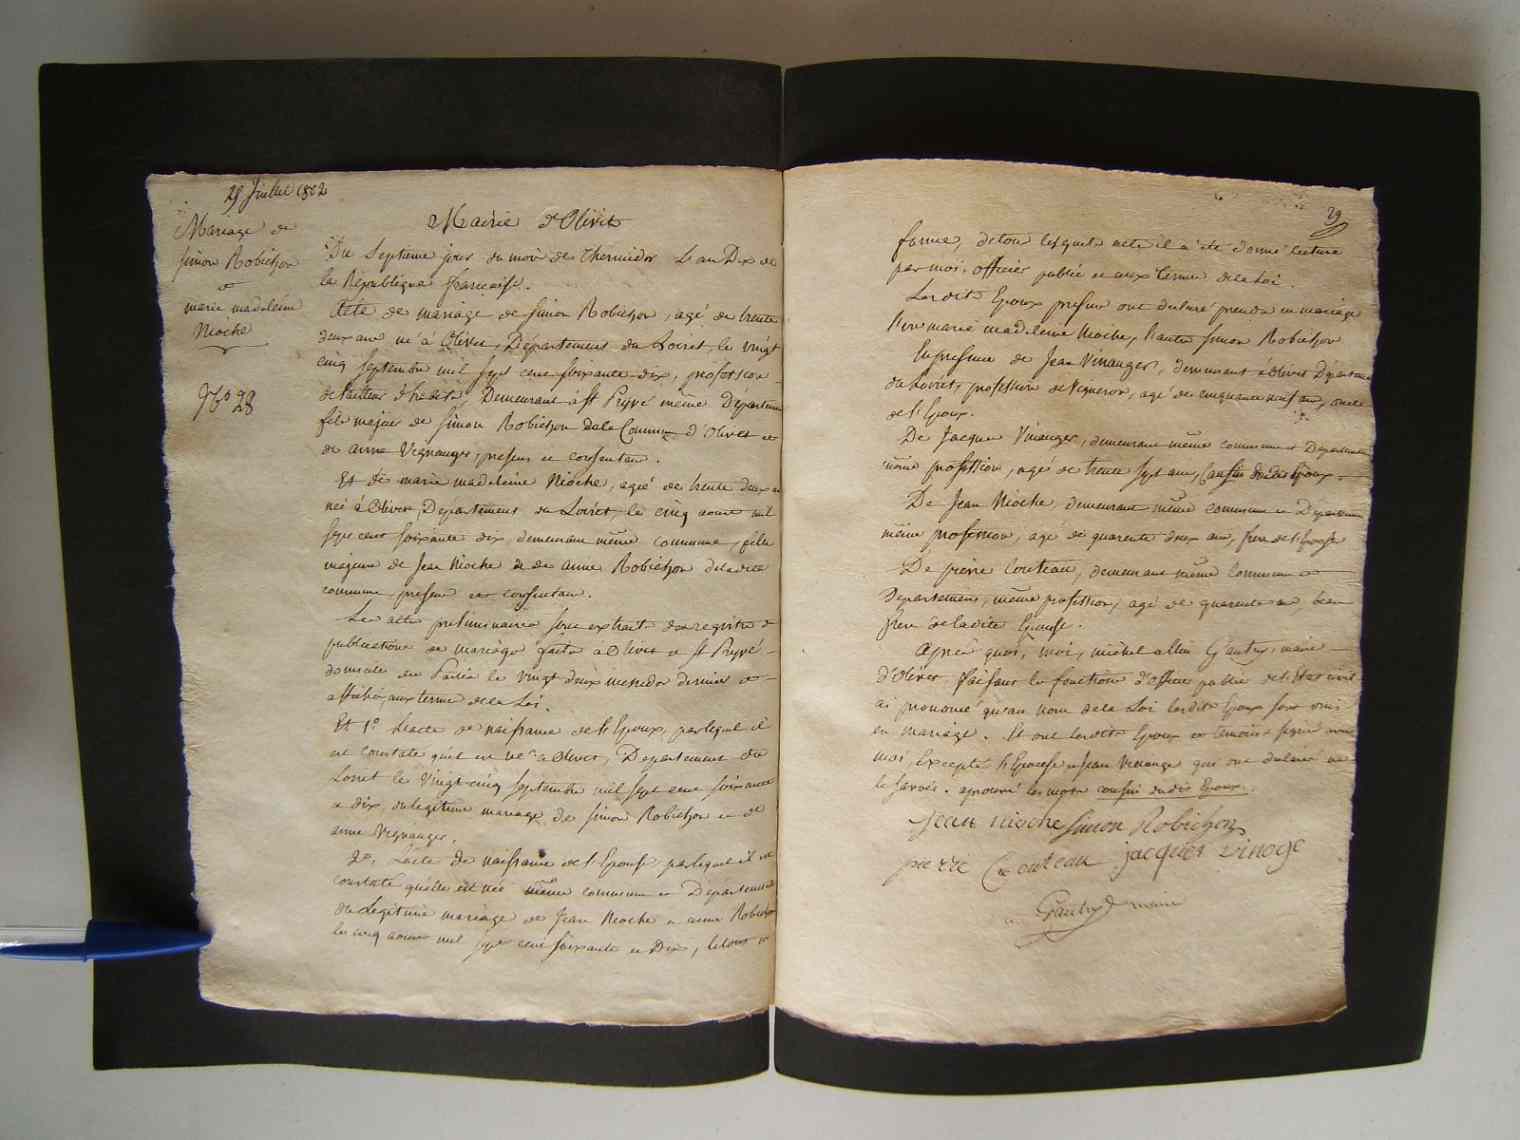 29 Juillet 1802
Mariage de
Simon Robichon
et
marie madeleine
Nioche
No 28
Mairie d'Olivet
Du Septieme jour du mois de Thermidor L'an Dix de
la Republique francaise.
Acte de mariage de Simon Robichon, agé de trente
deux ans né à Olivet, Département du Loiret, le vingt
cinq Septembre mil sept cent soixante dix, profession
de tailleur d'habits, Demeurant à St Pryvé même Departement
fils majeur de Simon Robichon de la Commune d'Olivet et
de anne Vignanger, present et consentant.
Et de marie madeleine Nioche, agée de trente deux ans
née à Olivet, Département du Loiret, le cinq aout mil
sept cent soixante dix, demeurant même commune, fille
majeure de Jean Nioche et de anne Robichon de ladite
commune, present et consentant.
Les actes preliminaires sont extrait du registre de
publications de mariage faite a Olivet et St Pryvé
le vingt deux messidor dernier et
affichés aux termes de la Loi.
Et 1o Lacte de naissance de l'Epoux, par lequel il
est constaté qu'il est né a Olivet, Departement du
Loiret le Vingt cinq Septembre mil sept cent soixante
et dix, du legitime mariage de Simon Robichon et de
anne Vignanger.
2o, Lacte de naissance de l'Epouse par lequel il est
constaté qu'elle est née même commune et Departement
du Legitime mariage de Jean Nioche et anne Robichon
le cinq aout mil sept cent soixante et Dix, le tout en
29
forme, de tous lesquels acte il a été donné lecture
par moi officier public et aux termes de la Loi.
Lesdits Epoux present ont declaré prendre en mariage
l'un marie madeleine Nioche, l'autre Simon Robichon
En presence de Jean Vinauger, demeurant à Olivet Département
du Loiret, profession de Vigneron, agé de cinquante neuf ans, oncle
de l'Epoux.
De Jacques Vinauger, demeurant même commune et Departement
même profession, agé de trente sept ans, Cousin dudit Epoux.
De Jean Nioche, demeurant même commune et Département
même profession, agé de quarente deux ans, frere de l'Epouse
De pierre Couteau, demeurant même Commune et
Departement, même profession, agé de quarente ans beau
frere de ladite Epouse.
Après quoi, moi, michel allin Gautry, maire
d'Olivet faisant les fonctions d'officier public de l'Etat civil
ai prononcé qu'au nom de la Loi lesdits Epoux sont unis
en mariage. Et ont lesdits Epoux et temoins signé avec
moi, Excepté l'Epouse et Jean Vinauger qui ont declaré ne
le savoir. approuvé les mots cousin dudit Epoux.
Jean nioche Simon Robichon
pierre Couteau jacques vinoge
Gautry maire